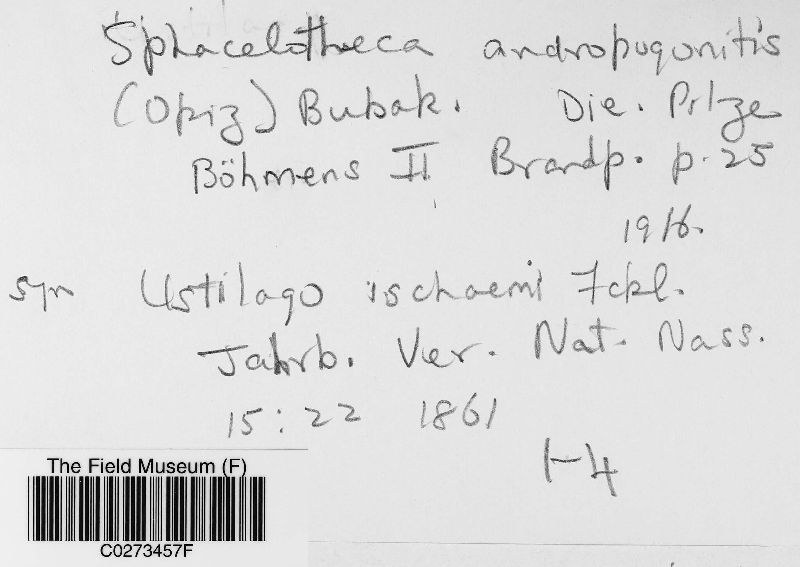 Sphacelotheca andropogonitis
(Opiz) Bubak. Die. Pilze
Böhmens II Brandp. p. 25
1916.
syn Ustilago ischaemi Fckl.
Jahrb. Ver. Nat. Nass.
15:22 1861
1-4
The Field Museum (F)
C0273457F